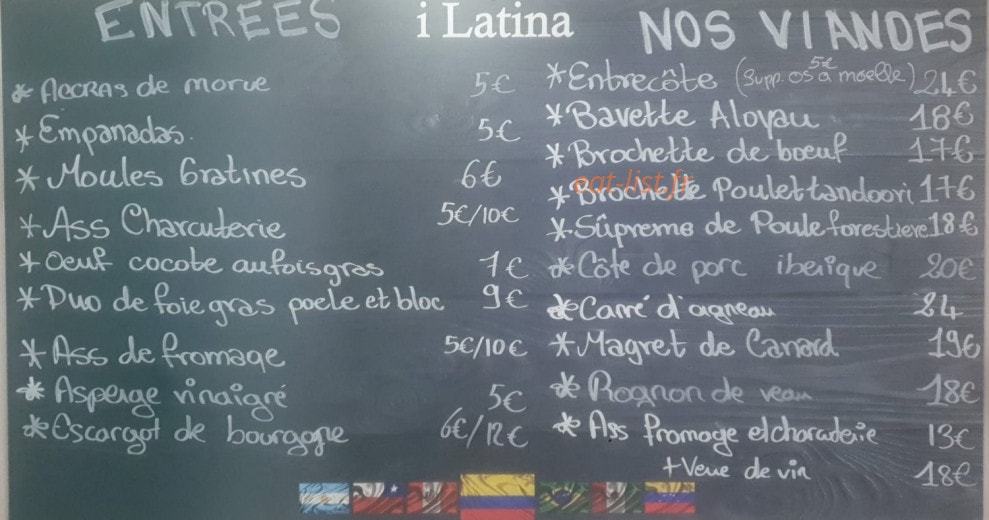 ENTREES
i Latina
NOS VIANDES
* Accras de morue 5€
* Empanadas. 5€
* Moules Gratines 6€
* Ass Charcuterie 5€/10€
* Oeuf cocote aufoisgras 7€
* Duo de foie gras poele et bloc 9€
* Ass de fromage 5€/10€
* Asperge vinaigré 5€
* Escargot de bourgogne 6€/12€
* Entrecôte (Supp. os à moelle) 5€ 24€
* Bavette Aloyau 18€
* Brochette de boeuf 17€
eat-list.fr
* Brochette Poulet tandoori 17€
* Sûpreme de Poule forestiere 18€
* Côte de porc iberique 20€
* Carré d'agneau 24
* Magret de Canard 19€
* Rognon de veau 18€
* Ass fromage et charcuterie 13€
+ Verre de vin 18€